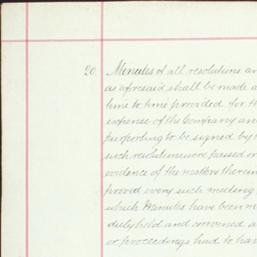 20. Minutes of all resolutions an
as aforesaid shall be made a
time to time provided for th
expense of the Company an
purporting to be signed by
such resolution were passed or
evidence of the matters therein
proved every such meeting
which Minutes have been m
duly held and convened a
or proceedings had to hav